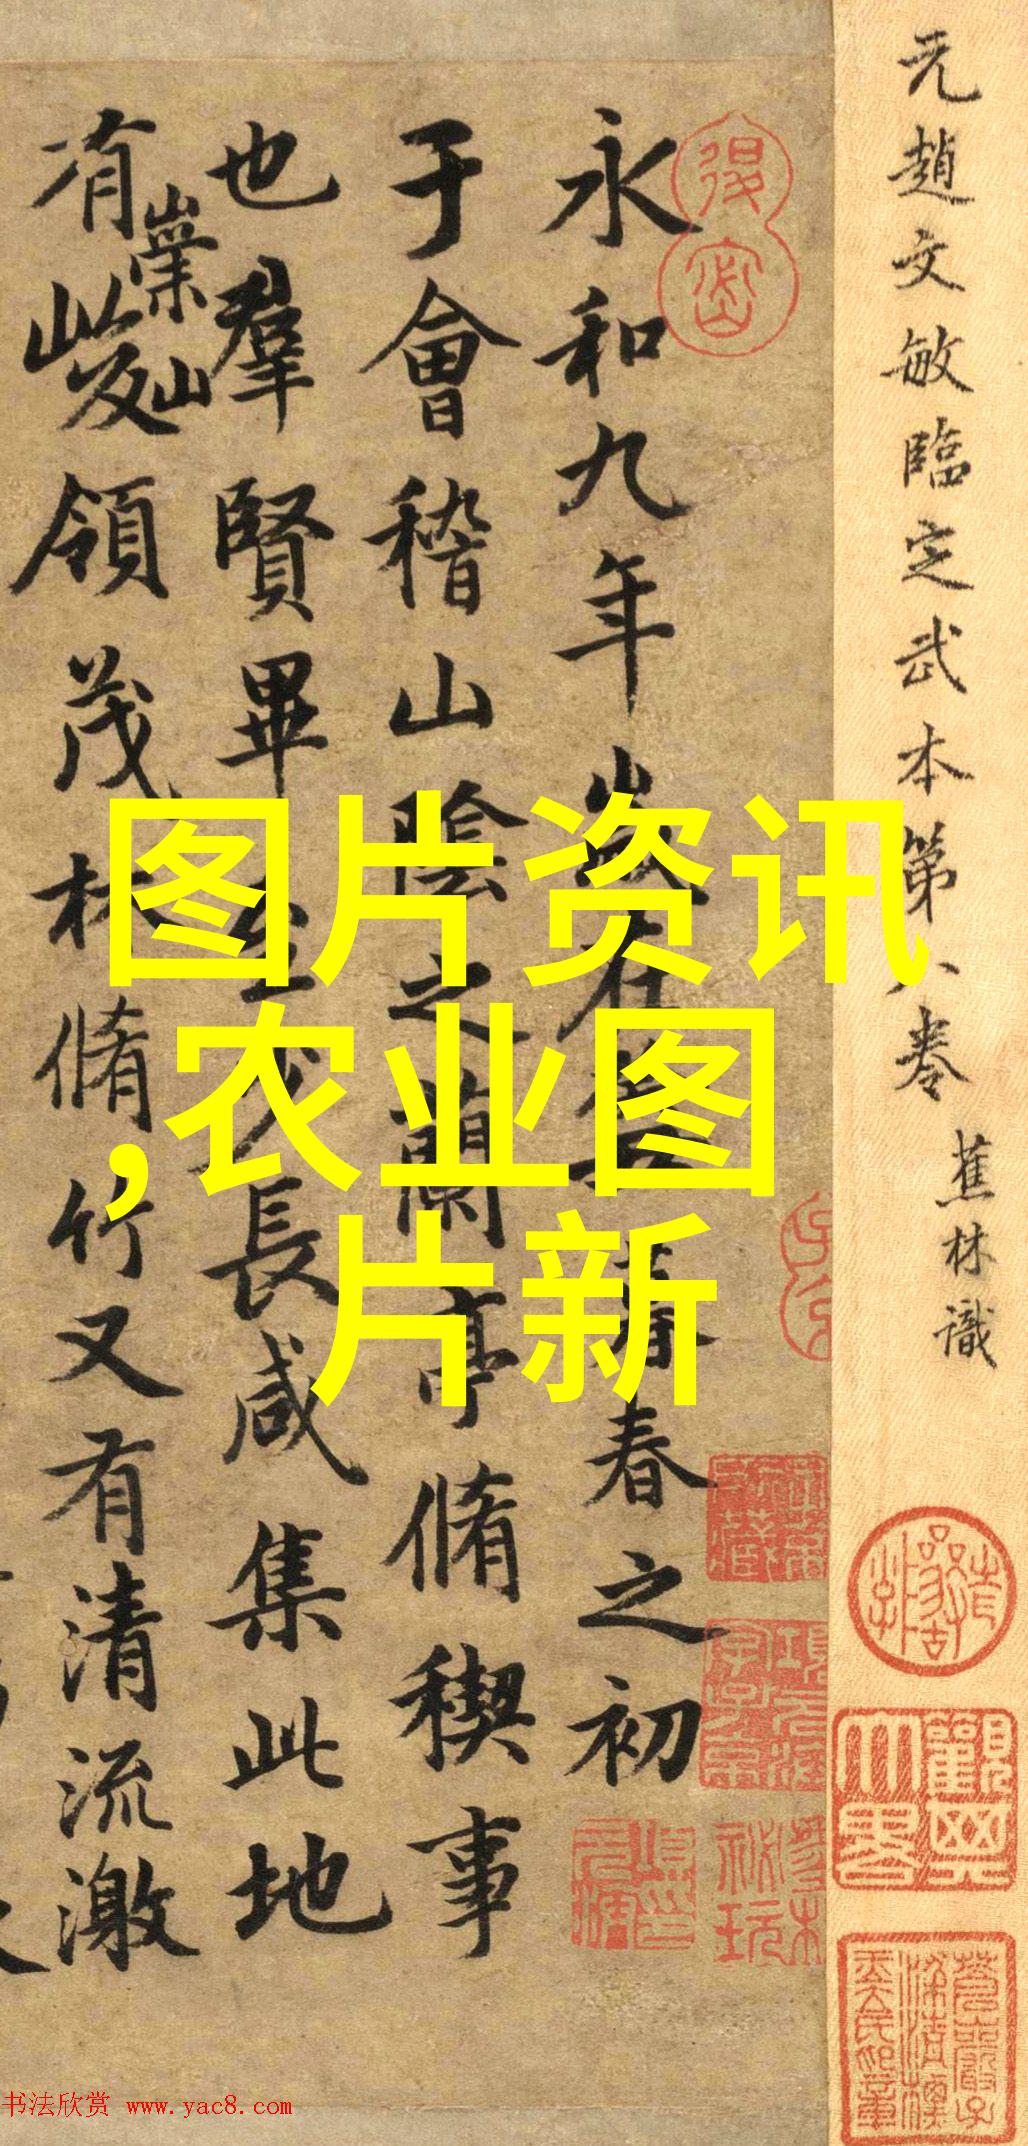 图片资讯
,农业图
片新
元趙文敏臨定武本第八卷
蕉林識
永和九年歲在癸丑暮春之初
于會稽山陰之蘭亭脩稧事
也羣賢畢至少長咸集此地
有崇山峻領茂林脩竹又有清流激
蒼巖子梁清標玉立氏印章
书法欣赏 www.yac8.com